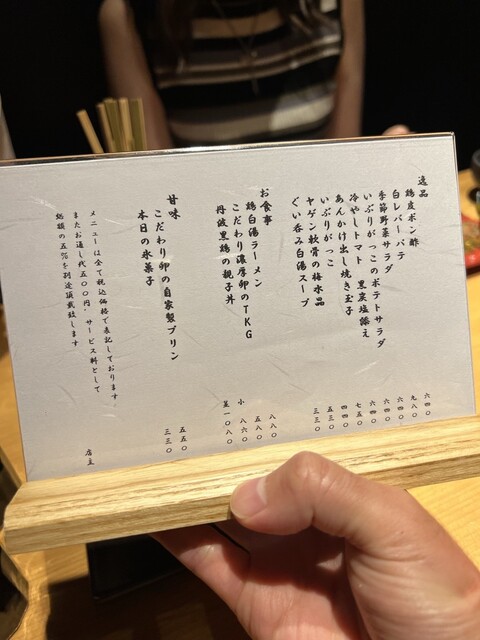 逸品
鶏皮ポン酢 六四〇
白レバーパテ 九八〇
季節野菜サラダ 六四〇
いぶりがっこのポテトサラダ 六四〇
冷やしトマト 黒炭塩添え 六四〇
あんかけ出し焼き玉子 七五〇
いぶりがっこ 四四〇
ヤゲン軟骨の梅水晶 五三〇
ぐい呑み白湯スープ 三三〇
お食事
鶏白湯ラーメン 八八〇
こだわり濃厚卵のTKG 五八〇
丹波黒鶏の親子丼 小 八六〇
一〇八〇
甘味
こだわり卵の自家製プリン 五五〇
本日の氷菓子 三三〇
メニューは全て税込価格で表記しております。
またお通し代五〇〇円、サービス料として
総額の五%を別途頂戴致します
店主